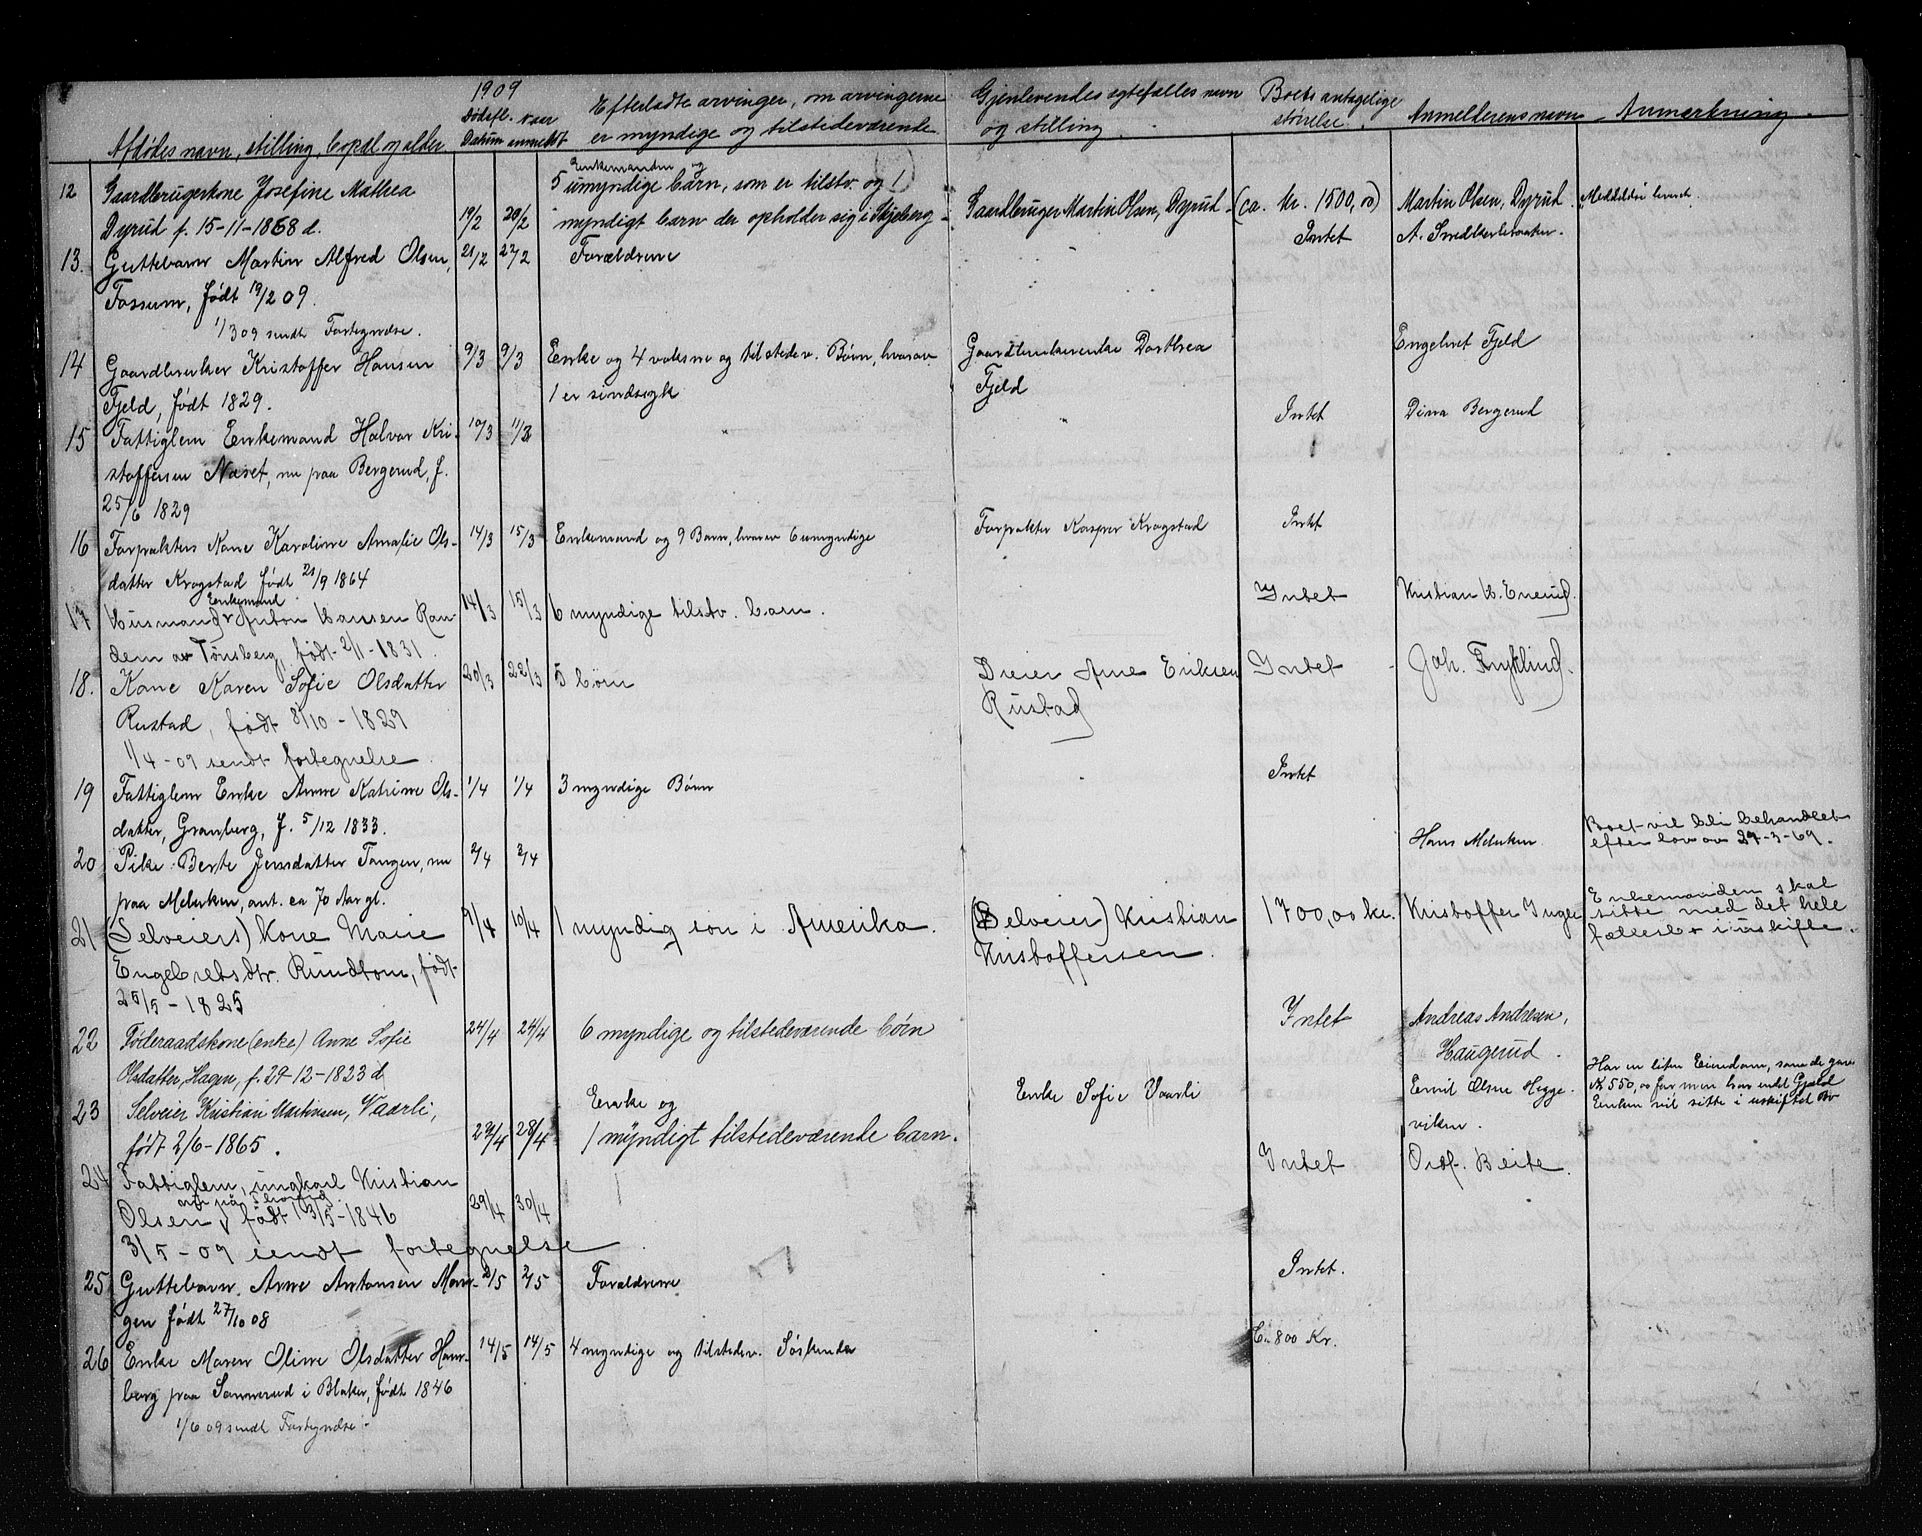 1909
Afdødes navn, stilling, bopæl og alder. Dødsfl. Datum naar anmeldt Efterladte arvinger, om arvingerne er myndige og tilstedeværende Gjenlevendes egtefælles navn og stilling. Boets antagelige størrelse. Anmelderens navn Anmerkning.
12 Gaardbrugerkone Josefine Mathea 19/2 20/2 Enkemanden og
Dyrud f. 15-11-1868 d. 5 umyndige børn, som er tilstv. og 1
myndigt barn der opholder sig i Skjeberg - Gaardbruger Martin Olsen, Dyrud - (ca. Kr. 1500,00) Martin Olsen, Dyrud.
13. Guttebarn Martin Alfred Olsen, 21/2 22/2 Forældrene Intet A.
Fossum, født 19/2 09.
1/3 09 sendt Fortegnelse.
14 Gaardbruker Kristoffer Hansen 9/3 9/3 Enke og 4 voksne og tilstedev. Børn, hvorav Gaardbrukerenke Dorthea Engebret Fjeld
Fjeld, født 1829. 1 er sindssyk Fjeld
15 Fattiglem Enkemand Halvor Kri- 10/3 11/3 " Intet Dina Bergerud
stoffersen Næset, nu paa Bergerud, f.
25/6 1829
16 Forpakters Kone Karoline Amalie Ols- 14/3 15/3 Enkemand og 9 Barn, hvorav 6 umyndige Forpakter Kasper Krogstad Intet
datter Krogstad født 21/9 1864
17 Husmand Enkemand Anton Hansen Ran- 14/3 15/3 6 myndige tilstv. barn. Intet Kristian H. Enerud.
dem av Tønsberg, født 2/1 - 1831.
18. Kone Karen Sofie Olsdatter 20/3 22/3 5 børn Dreier Arne Eriksen Intet Joh. Fryklind.
Rustad, født 8/10 - 1829 Rustad
1/4 - 09 sendt fortegnelse
19 Fattiglem Enke Anne Katrine Ols- 1/4 1/4 3 myndige Børn Intet
datter, Granberg, f. 5/12 1833.
20 Pike Berte Jensdatter Tangen, nu 2/4 2/4 Hans Melnken Boet vil bli behandlet
paa Melnken, ant. ca 70 Aar gl. efter lov av 29-3-69.
21 (Selveiers) Kone Marie 9/4 10/4 1 myndig søn i Amerika. (Selveier) Kristian 1700,00 kr. Kristoffer Enkemanden skal
Engebretsdtr. Rundtom, født Kristoffersen. sitte med det hele
25/5 - 1825 fællesbo i uskifte.
22 Føderaadskone (enke) Anne Sofie 24/4 24/4 6 myndige og tilstedeværende børn Intet Andreas Andresen,
Olsdatter, Hagen, f. 29-12-1823 d Haugerud.
23 Selveier Kristian Martinsen, Vaarli, 28/4 Enke og Enke Sofie Vaarli Emil Olsen Hegge- Har en liten Eiendom, som de gav
født 2/6 - 1865. 1 myndigt tilstedeværende barn. viken. K 550,00 for men har endel Gjæld
Enken vil sitte i uskiftet Bo
24 Fattiglem, ungkarl Kristian 29/4 30/4 Intet Oidf. Beite.
Olsen, født - 1846
3/5 - 09 sendt fortegnelse
25 Guttebarn. Arne Antonsen Mon- 2/5 2/5 Forældrene. Intet.
gen født 27/10 08
26 Enke Maren Oline Olsdatter Ham- 14/5 14/5 4 myndige og tilstedev. Søskende Ca 800 Kr.
borg paa Sannerud i Blaker, født 1846
1/6 09 sendt Fortegnelse.